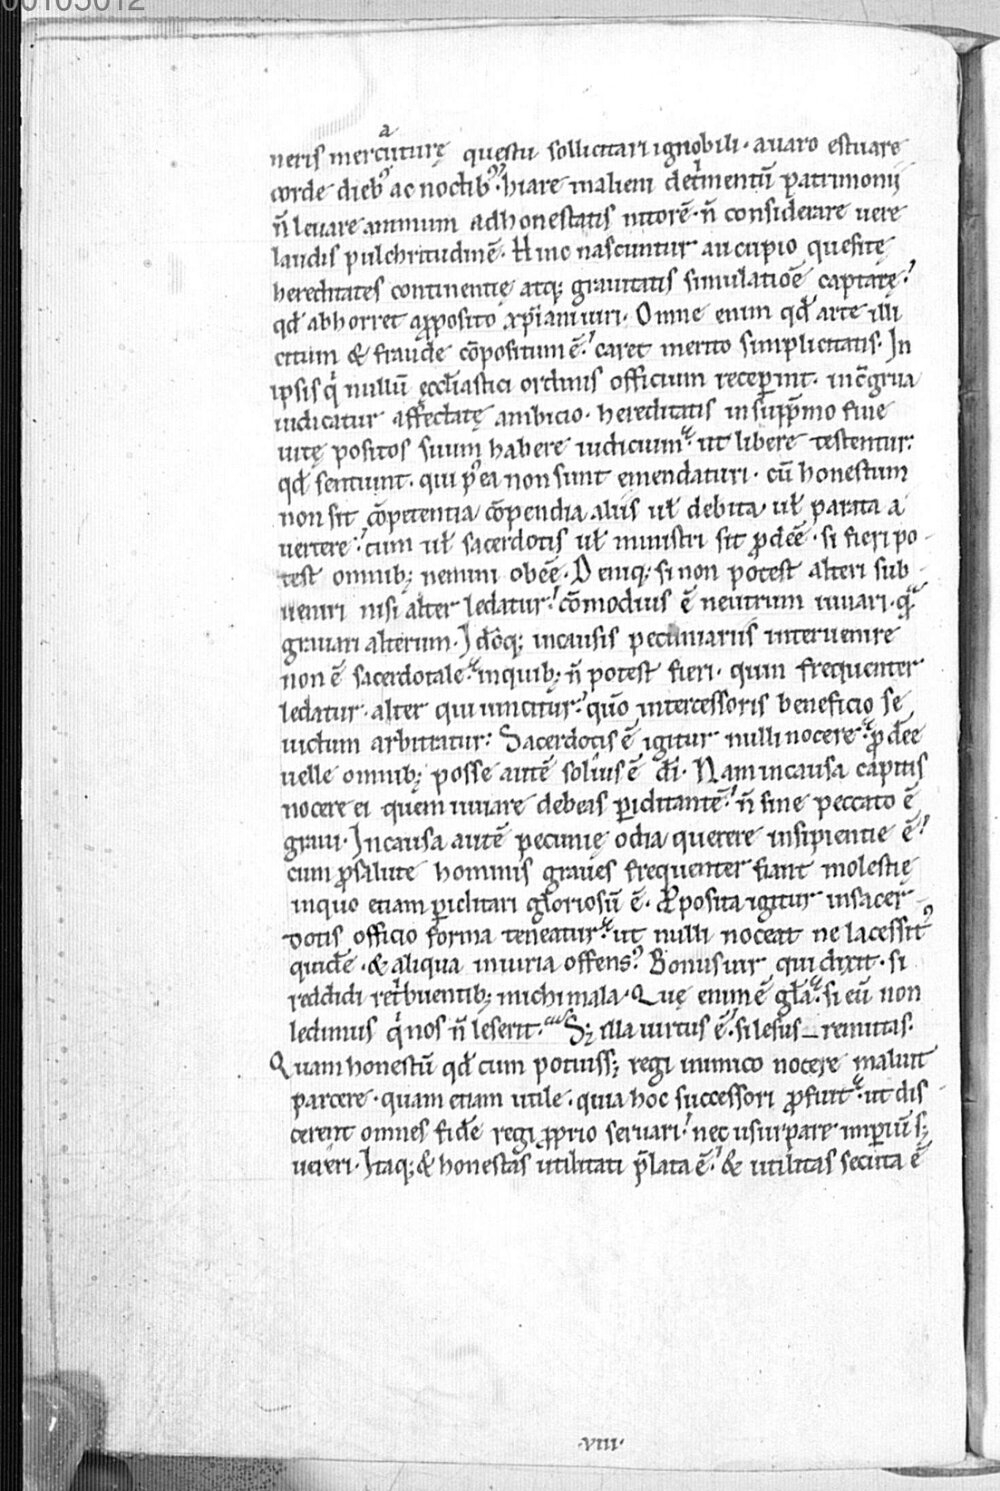 00105012
neris mercaturę questu sollicitari ignobili· auaro estuare
corde dieb⁹ ac noctib⁹· hiare in alieni det̾mentū patrimonii
n̄ leuare animum ad honestatis nitorē· n̄ considerare uere
laudis pulchritudinē· Hinc nascuntur aucupio quesitę
hereditates continentię atq; grauitatis simulatiōe captatę·
qd̄ abhorret a ꝓposito xp̄iani uiri· Omne enim qd̄ arte illi
citum & fraude cōpositum ē· caret merito simplicitatis· In
ipsis q̇ nullū eccl̄iastici ordinis officium recep̄int· incōgrua
iudicatur affectatę ambicio· hereditatis in supp̄mo fine
uitę positos suum habere iudicium· ut libere testentur·
qd̄ sentiunt· qui p⁹ea non sunt emendaturi· cū honestum
non sit cōpetentia cōpendia aliis ul̄ debita· ul̄ parata a
uertere· cum ul̄ sacerdotis ul̄ ministri sit ꝓdeē· si fieri po-
test omnib; nemini obeē· Deniq; si non potest alteri sub-
ueniri nisi alter ledatur· cōmodius ē neutrum iuuari· q̄
grauari alterum· Idōq; in causis pecuniariis interuenire
non ē sacerdotale· in quib; n̄ potest fieri· quin frequenter
ledatur· alter qui uincitur· quō intercessoris beneficio se
uictum arbitratur· Sacerdotis ē igitur nulli nocere· ꝓdeē
uelle omnib; posse autē solius ē dī· Nam in causa capitis
nocere ei quem iuuare debeas ꝑiclitantē· n̄ sine peccato ē
graui· In causa autē pecunię odia querere insipientie ē·
cum ꝓ salute hominis graues frequenter fiant molestię
in quo etiam ꝑiclitari gl̄oriosū ē· P̄posita igitur in sacer-
dotis officio forma teneatur· ut nulli noceat ne lacessit⁹
quidē· & aliqua iniuria offens⁹· Bonus uir qui dixit· si
reddidi ret̾buentib; michi mala· Quę enim ē gl̄a· si eū non
ledimus q̇ nos n̄ leserit· S; illa uirtus ē· si lesus remittas·
Quam honestū qd̄ cum potuiss; regi inimico nocere maluit
parcere· quam etiam utile· quia hoc successori ꝓfuit· ut dis
cerent omnes fidē regi ꝓprio seruari· nec usurpare imꝑiū s;
uereri· Itaq; & honestas utilitati p̄lata ē· & utilitas secuta ē
·VIII·